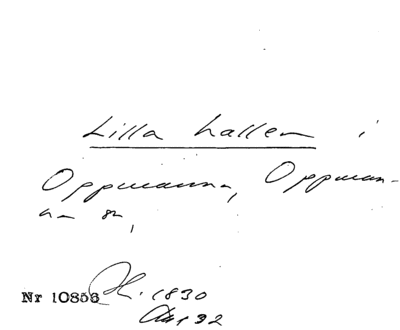 Lilla hallen i
Oppmanna, Oppman-
na sn,
Nr 10856 1830
32